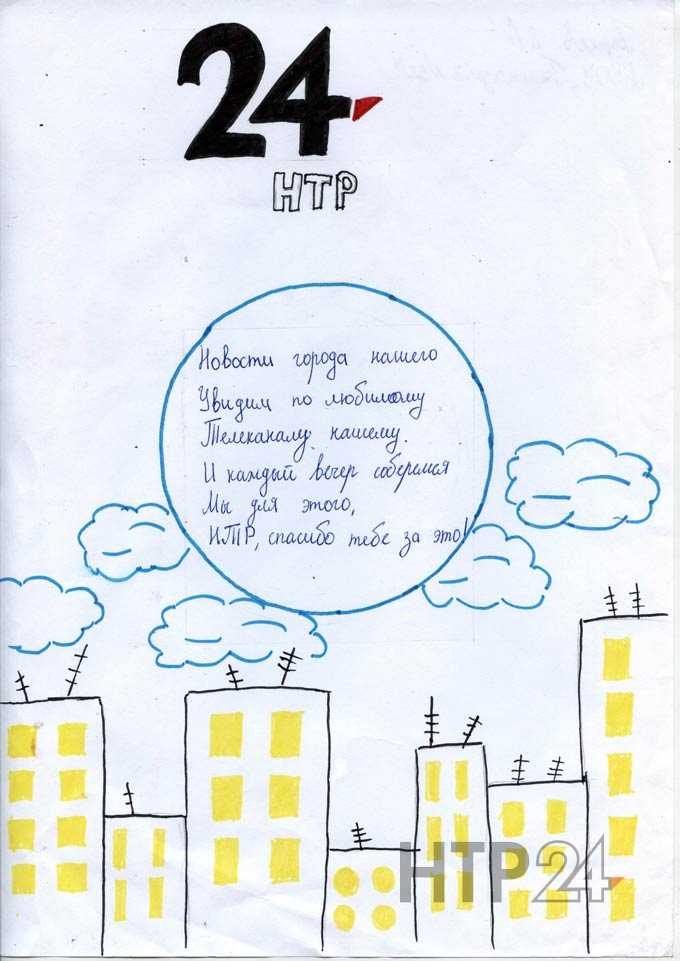 24
НТР
Новости города нашего
Увидим по любимому
Телеканалу нашему.
И каждый вечер соберемся
Мы для этого,
НТР, спасибо тебе за это!
НТР24